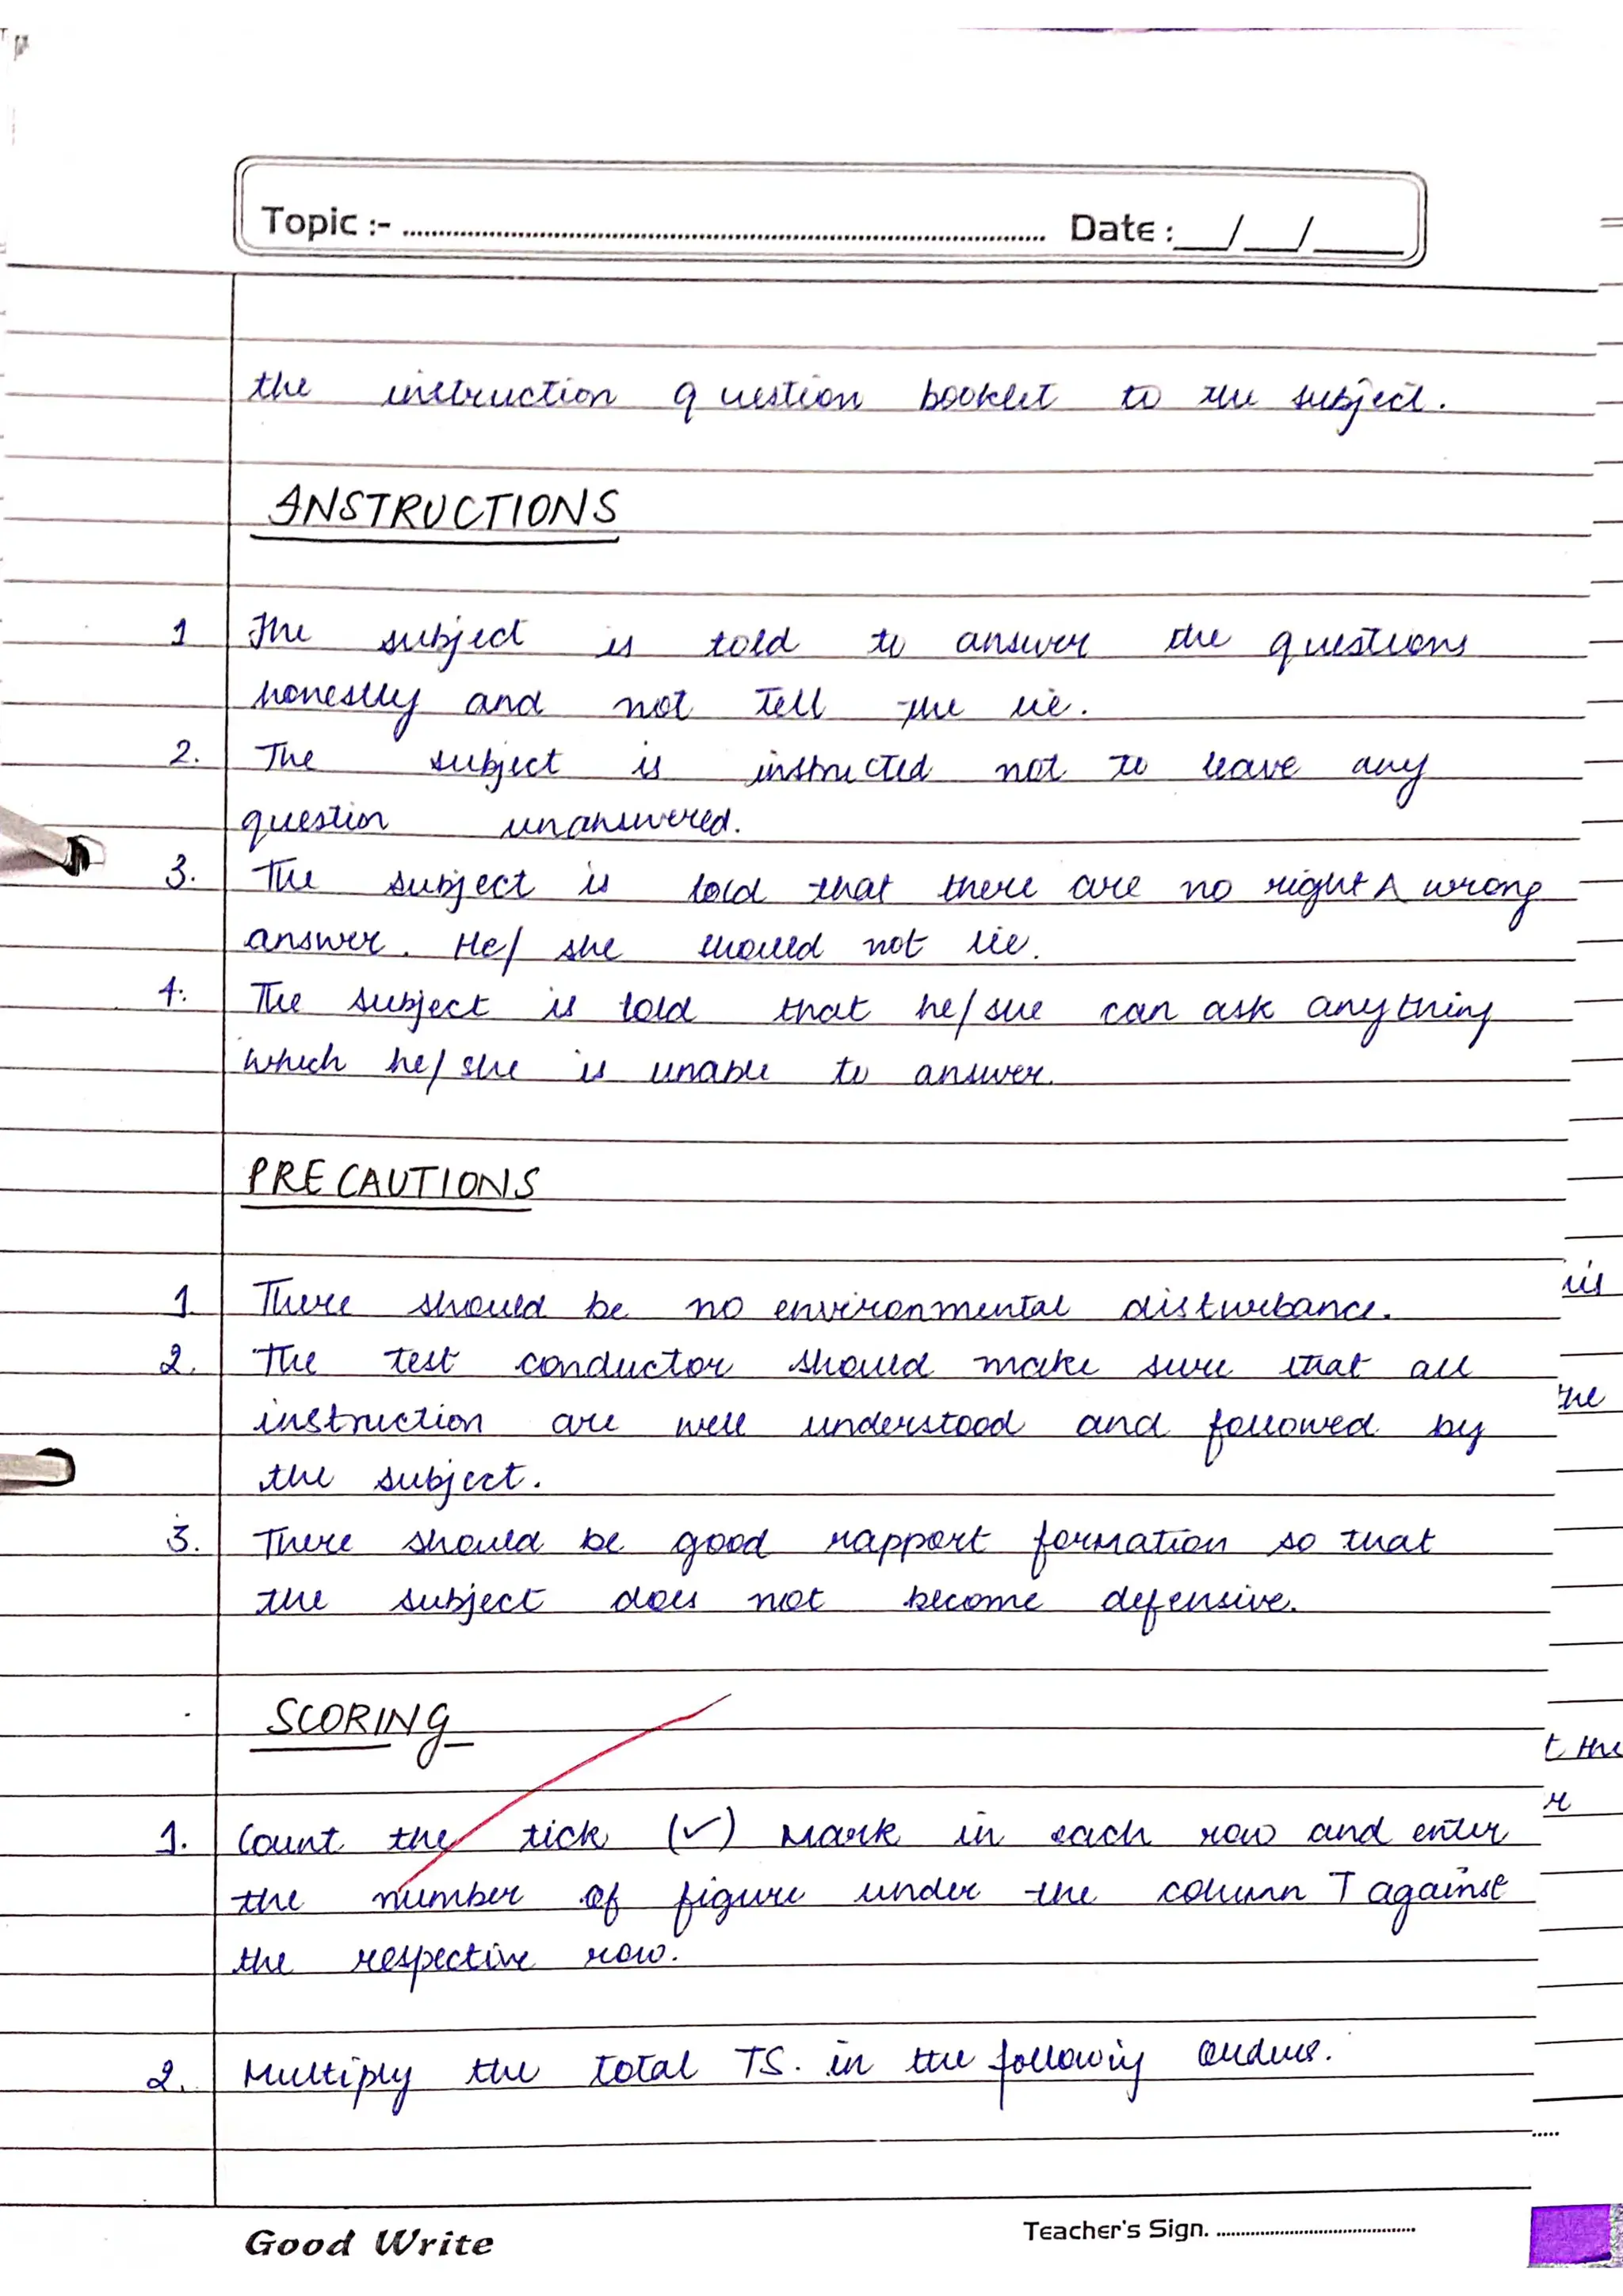 Topic :- .......... Date : __/__/____
the instruction question booklet to the subject.
INSTRUCTIONS
1 The subject is told to answer the questions
honestly and not tell the lie.
2. The subject is instructed not to leave any
question unanswered.
3. The subject is told that there are no right ʌ wrong
answer. He/ she should not lie.
4. The subject is told that he/she can ask anything
which he/she is unable to answer.
PRECAUTIONS
1 There should be no environmental disturbance.
2. The test conductor should make sure that all
instruction are well understood and followed by
the subject.
3. There should be good rapport formation so that
the subject does not become defensive.
SCORING
1. Count the tick (✓) mark in each row and enter
the number of figure under the column T against
the respective row.
2. Multiply the total TS. in the following
Good Write
Teacher's Sign. ..........